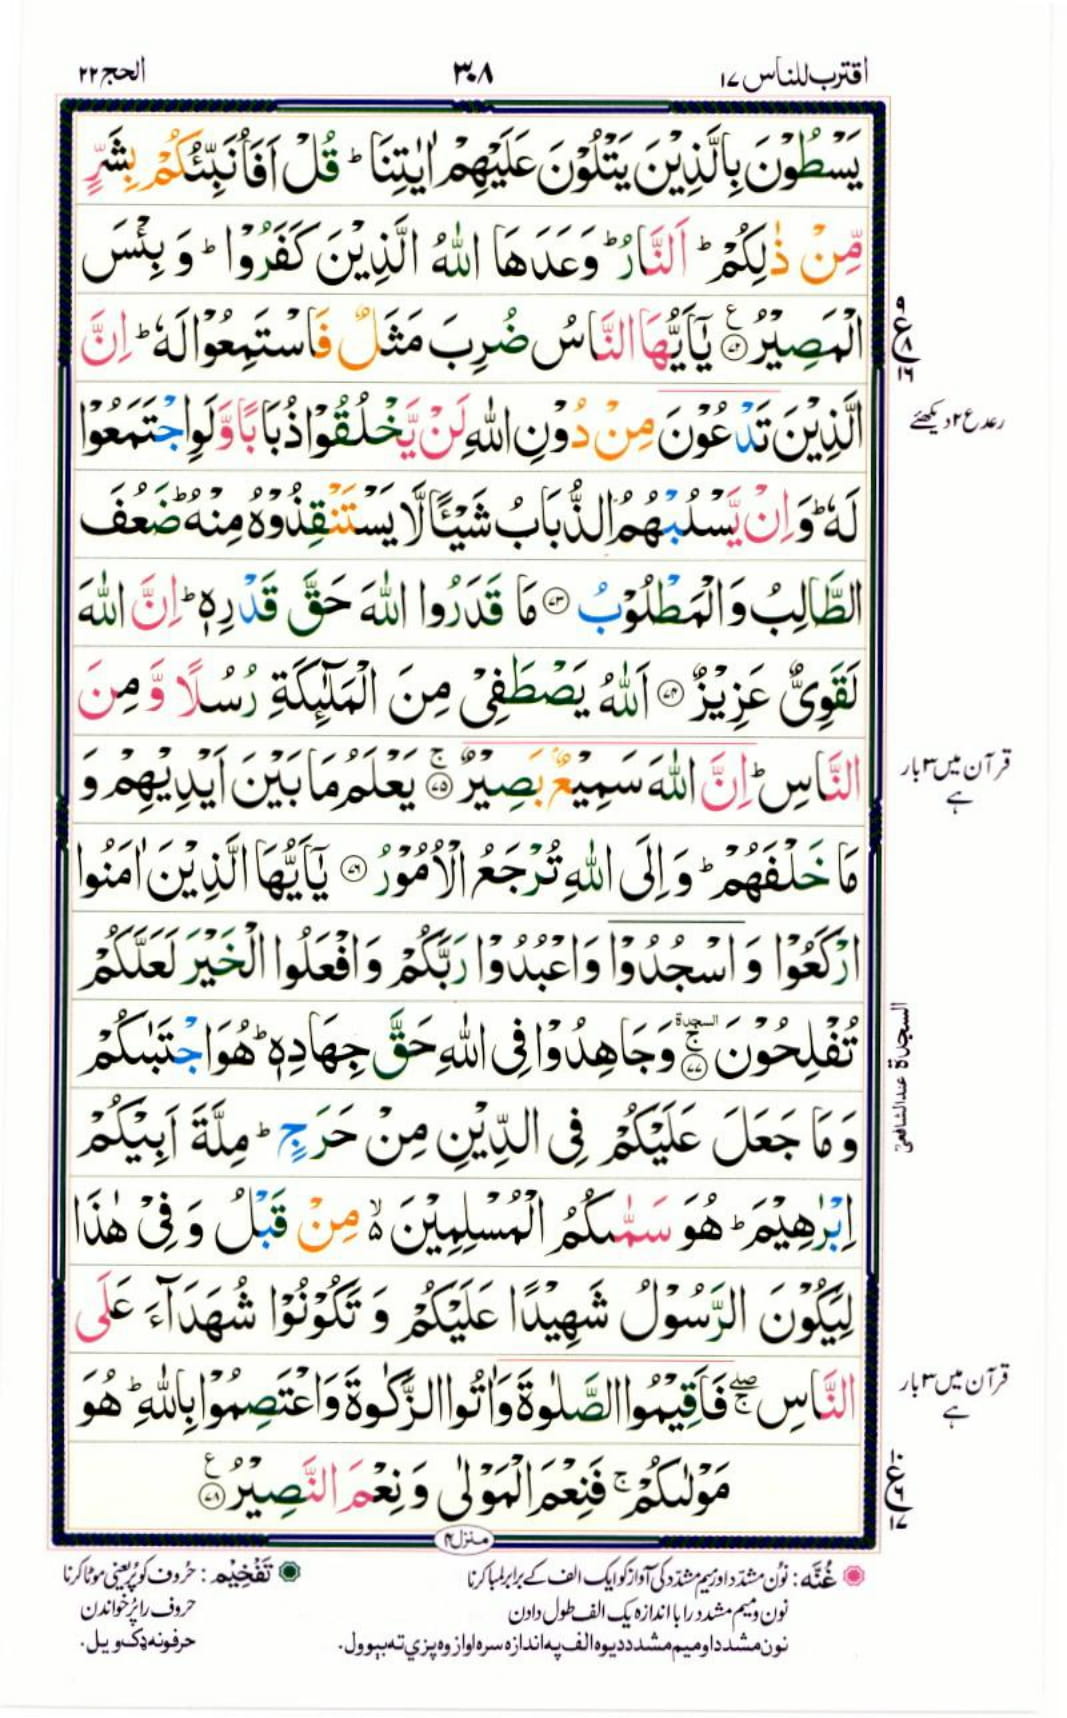 اقترب للناس ۱۷
۳۰۸
الحج ۲۲
يَسْطُوْنَ بِالَّذِيْنَ يَتْلُوْنَ عَلَيْهِمْ اٰيٰتِنَا ؕ قُلْ اَفَاُنَبِّئُكُمْ بِشَرٍّ
مِّنْ ذٰلِكُمْ ؕ اَلنَّارُ ؕ وَعَدَهَا اللّٰهُ الَّذِيْنَ كَفَرُوْا ؕ وَ بِئْسَ
الْمَصِيْرُ ۧ﴿۷۲﴾ يٰۤاَيُّهَا النَّاسُ ضُرِبَ مَثَلٌ فَاسْتَمِعُوْا لَهٗ ؕ اِنَّ
الَّذِيْنَ تَدْعُوْنَ مِنْ دُوْنِ اللّٰهِ لَنْ يَّخْلُقُوْا ذُبَابًا وَّلَوِ اجْتَمَعُوْا
رعد ع ۲ دیکھئے
لَهٗ ؕ وَ اِنْ يَّسْلُبْهُمُ الذُّبَابُ شَيْـًٔا لَّا يَسْتَنْقِذُوْهُ مِنْهُ ؕ ضَعُفَ
الطَّالِبُ وَالْمَطْلُوْبُ ﴿۷۳﴾ مَا قَدَرُوا اللّٰهَ حَقَّ قَدْرِهٖ ؕ اِنَّ اللّٰهَ
لَقَوِىٌّ عَزِيْزٌ ﴿۷۴﴾ اَللّٰهُ يَصْطَفِىْ مِنَ الْمَلٰٓئِكَةِ رُسُلًا وَّ مِنَ
النَّاسِ ؕ اِنَّ اللّٰهَ سَمِيْعٌۢ بَصِيْرٌ ۚ﴿۷۵﴾ يَعْلَمُ مَا بَيْنَ اَيْدِيْهِمْ وَ
قرآن میں ۳ بار ہے
مَا خَلْفَهُمْ ؕ وَ اِلَى اللّٰهِ تُرْجَعُ الْاُمُوْرُ ﴿۷۶﴾ يٰۤاَيُّهَا الَّذِيْنَ اٰمَنُوا
ارْكَعُوْا وَ اسْجُدُوْا وَ اعْبُدُوْا رَبَّكُمْ وَ افْعَلُوا الْخَيْرَ لَعَلَّكُمْ
تُفْلِحُوْنَ ۚ السجدة ﴿۷۷﴾ وَ جَاهِدُوْا فِى اللّٰهِ حَقَّ جِهَادِهٖ ؕ هُوَ اجْتَبٰىكُمْ
السجدة عند الشافعی
وَ مَا جَعَلَ عَلَيْكُمْ فِى الدِّيْنِ مِنْ حَرَجٍ ؕ مِلَّةَ اَبِيْكُمْ
اِبْرٰهِيْمَ ؕ هُوَ سَمّٰىكُمُ الْمُسْلِمِيْنَ ۙ مِنْ قَبْلُ وَ فِىْ هٰذَا
لِيَكُوْنَ الرَّسُوْلُ شَهِيْدًا عَلَيْكُمْ وَ تَكُوْنُوْا شُهَدَآءَ عَلَى
النَّاسِ ۖۚ فَاَقِيْمُوا الصَّلٰوةَ وَاٰتُوا الزَّكٰوةَ وَاعْتَصِمُوْا بِاللّٰهِ ؕ هُوَ
قرآن میں ۳ بار ہے
مَوْلٰىكُمْ ۚ فَنِعْمَ الْمَوْلٰى وَ نِعْمَ النَّصِيْرُ ۧ﴿۷۸﴾
منزل ۴
غُنَّه : نُون مشدّد اور میم مشدّد کی آواز کو ایک الف کے برابر لمبا کرنا
نون و میم مشدد را با اندازه یک الف طول دادن
نون مشدد او میم مشدد د یوه الف په اندازه سره اواز وه پزې ته بیوول.
تَفْخِيْم : حُروف کو پُر یعنی موٹا کرنا
حروف را پُر خواندن
حرفونه ډک ویل.